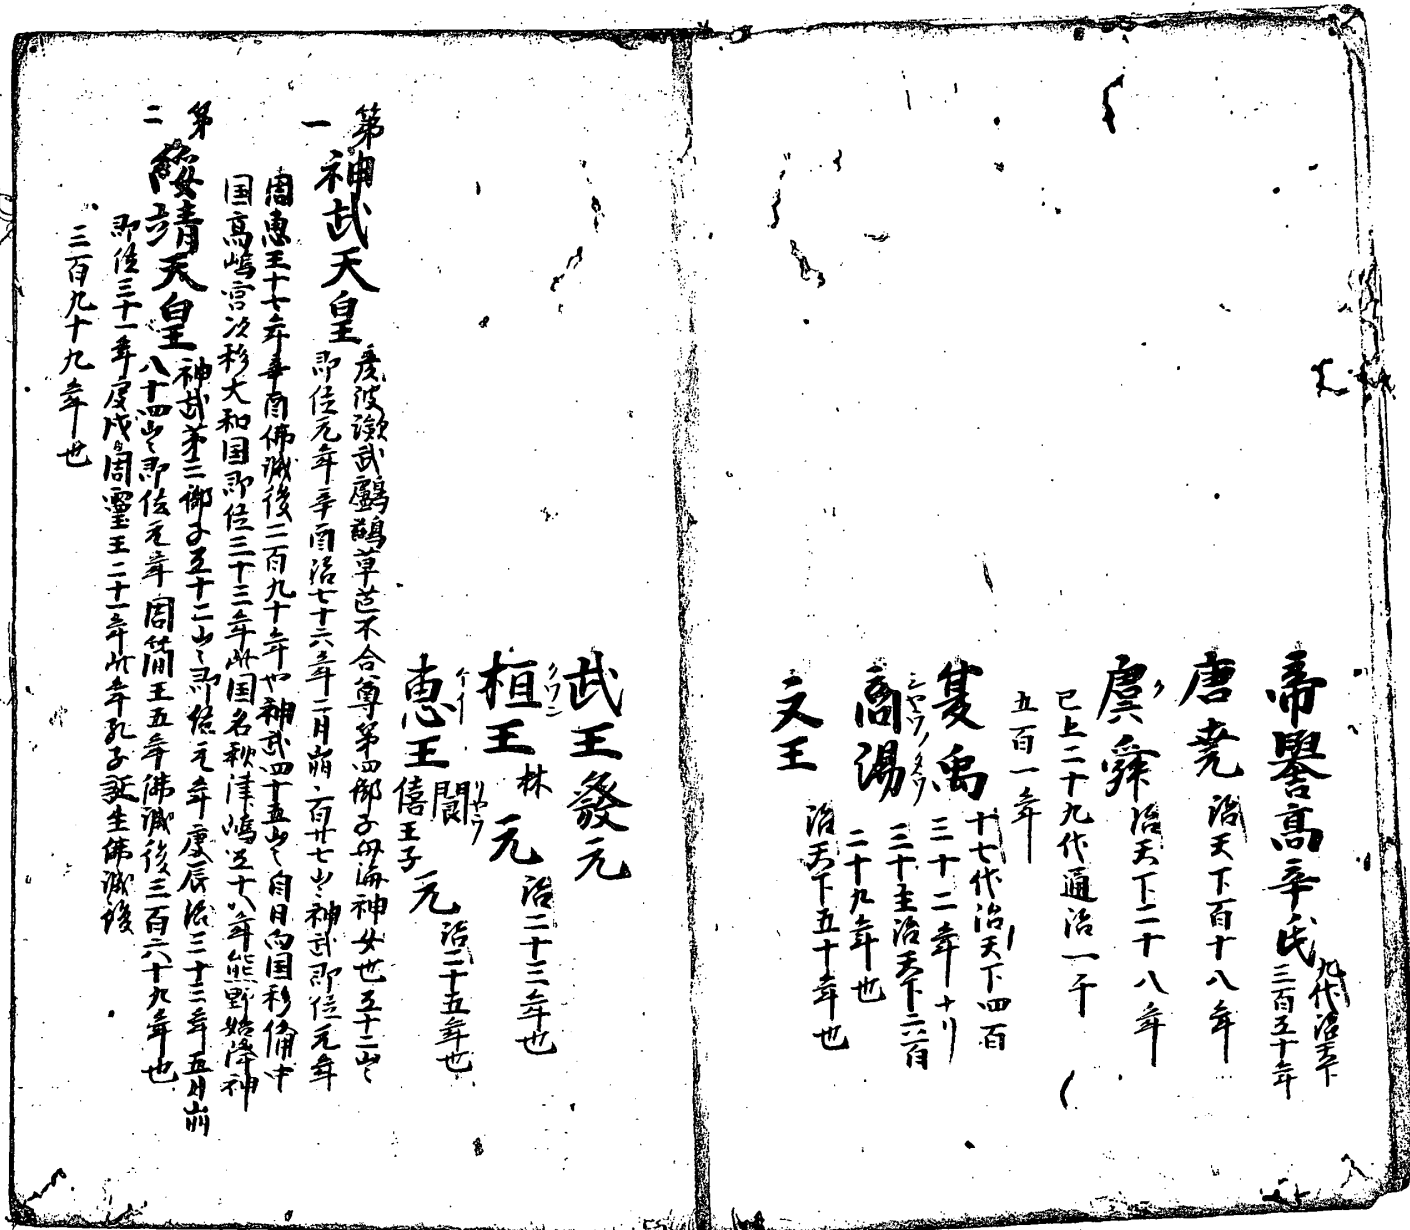 帝嚳高辛氏 九代治天下
三百五十年
唐堯 治天下百十八年
虞舜 治天下二十八年
已上二十九代通治一千
五百一年
夏禹 十七代治天下四百
三十二年ナリ
シヤウノタウ
商湯 三十主治天下六百
二十九年也
文王 治天下五十年也
武王發元
クワン
桓王 林元 治二十三年也
ケイ リヤウ
恵王 閬 僖王子 元 治二十五年也
第一 神武天皇 彦波瀲武鸕鶿草葺不合尊第四御子母海神女也五十二
即位元年辛酉治七十六年二月崩百廿七 神武即位元年
周惠王十七年辛酉佛滅後二百九十年也神武四十五 自日向国移備中
国高嶋宮次移大和国即位三十三年此国名秋津嶋五十八年熊野始降神
第二 綏靖天皇 神武第三御子五十二 即位元年庚辰治三十三年五月崩
八十四 即位元年周簡王五年佛滅後三百六十九年也
即位三十一年庚戌周靈王二十一年此年孔子誕生佛滅後
三百九十九年也